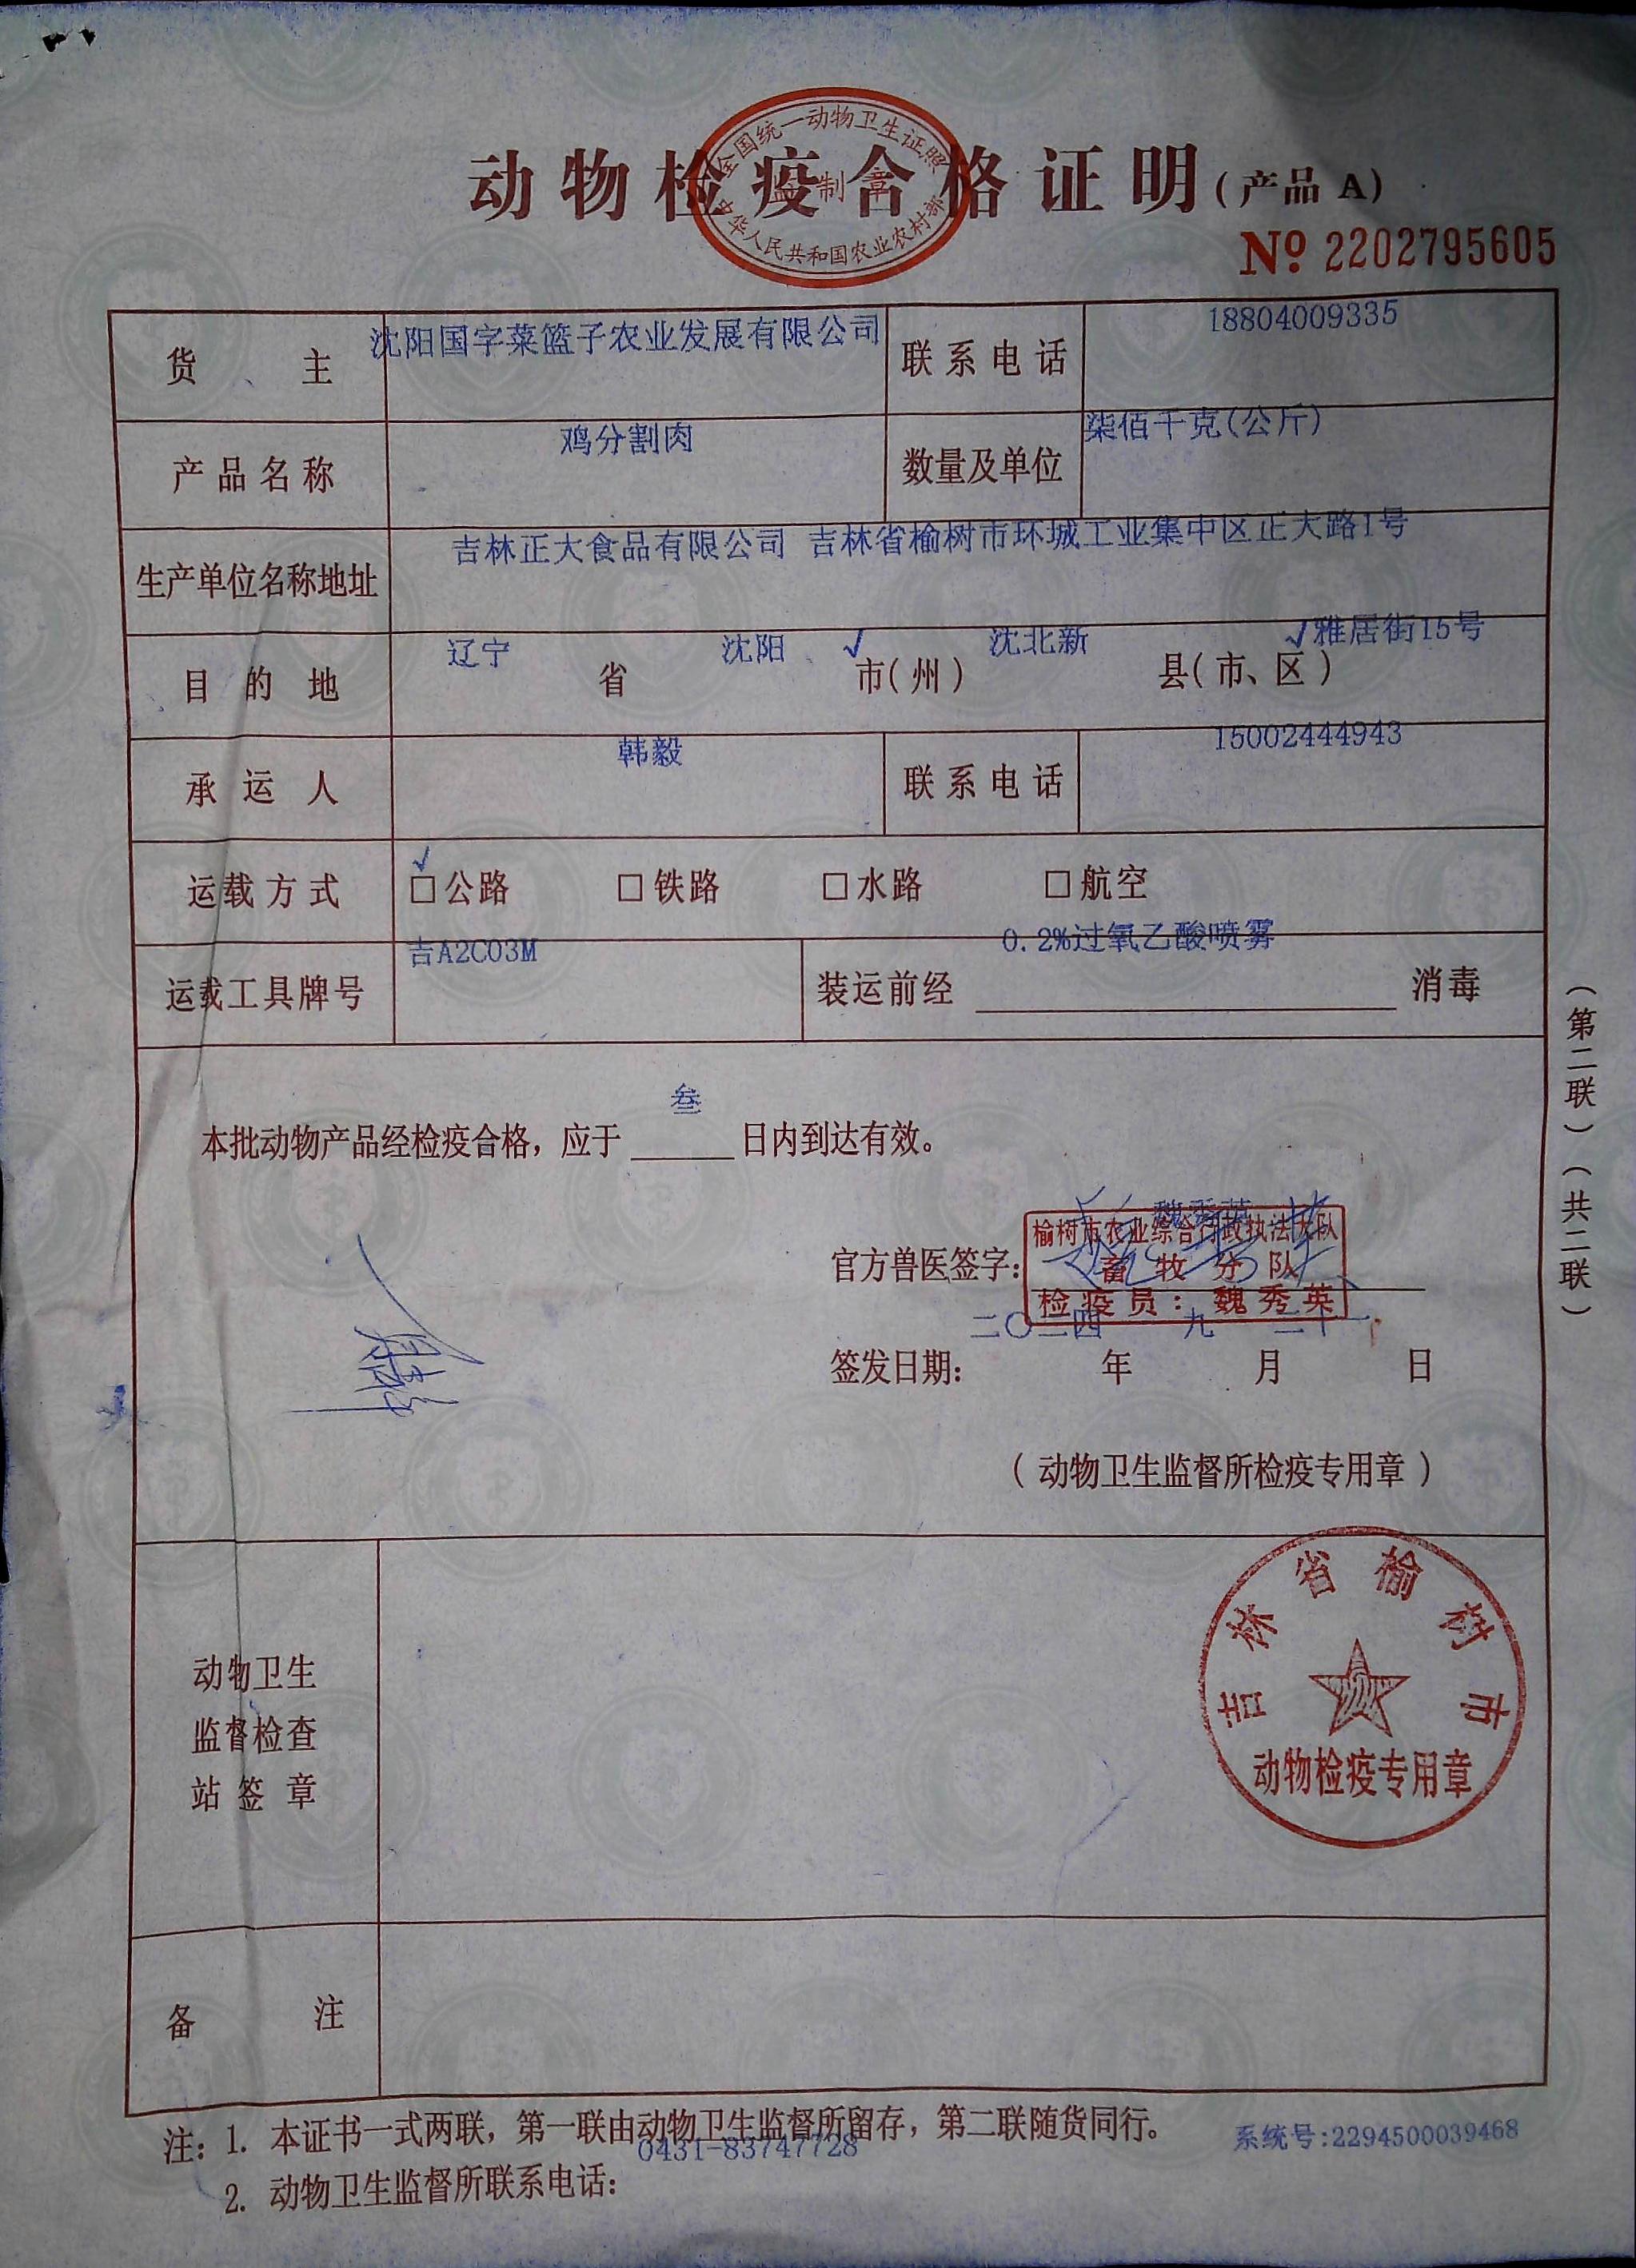 全国统一动物卫生证照
监制章
中华人民共和国农业农村部
动物检疫合格证明(产品 A)
№ 2202795605
货 主 沈阳国字菜篮子农业发展有限公司 联系电话 18804009335
产品名称 鸡分割肉 数量及单位 柒佰千克(公斤)
生产单位名称地址 吉林正大食品有限公司 吉林省榆树市环城工业集中区正大路1号
目的地 辽宁 省 沈阳 √ 市(州) 沈北新 县(市、区) √ 雅居街15号
承运人 韩毅 联系电话 15002444943
运载方式 √ □公路 □铁路 □水路 □航空
运载工具牌号 吉A2C03M 装运前经 0.2%过氧乙酸喷雾 消毒
本批动物产品经检疫合格，应于 叁 日内到达有效。
官方兽医签字： 魏秀英
榆树市农业综合行政执法大队
畜牧分队
检疫员：魏秀英
签发日期： 二〇二四 年 九 月 二十一 日
(动物卫生监督所检疫专用章)
动物卫生
监督检查
站签章
吉林省榆树市
动物检疫专用章
备 注
(第二联)(共二联)
注：1. 本证书一式两联，第一联由动物卫生监督所留存，第二联随货同行。
系统号:2294500039468
2. 动物卫生监督所联系电话： 0431-83747728